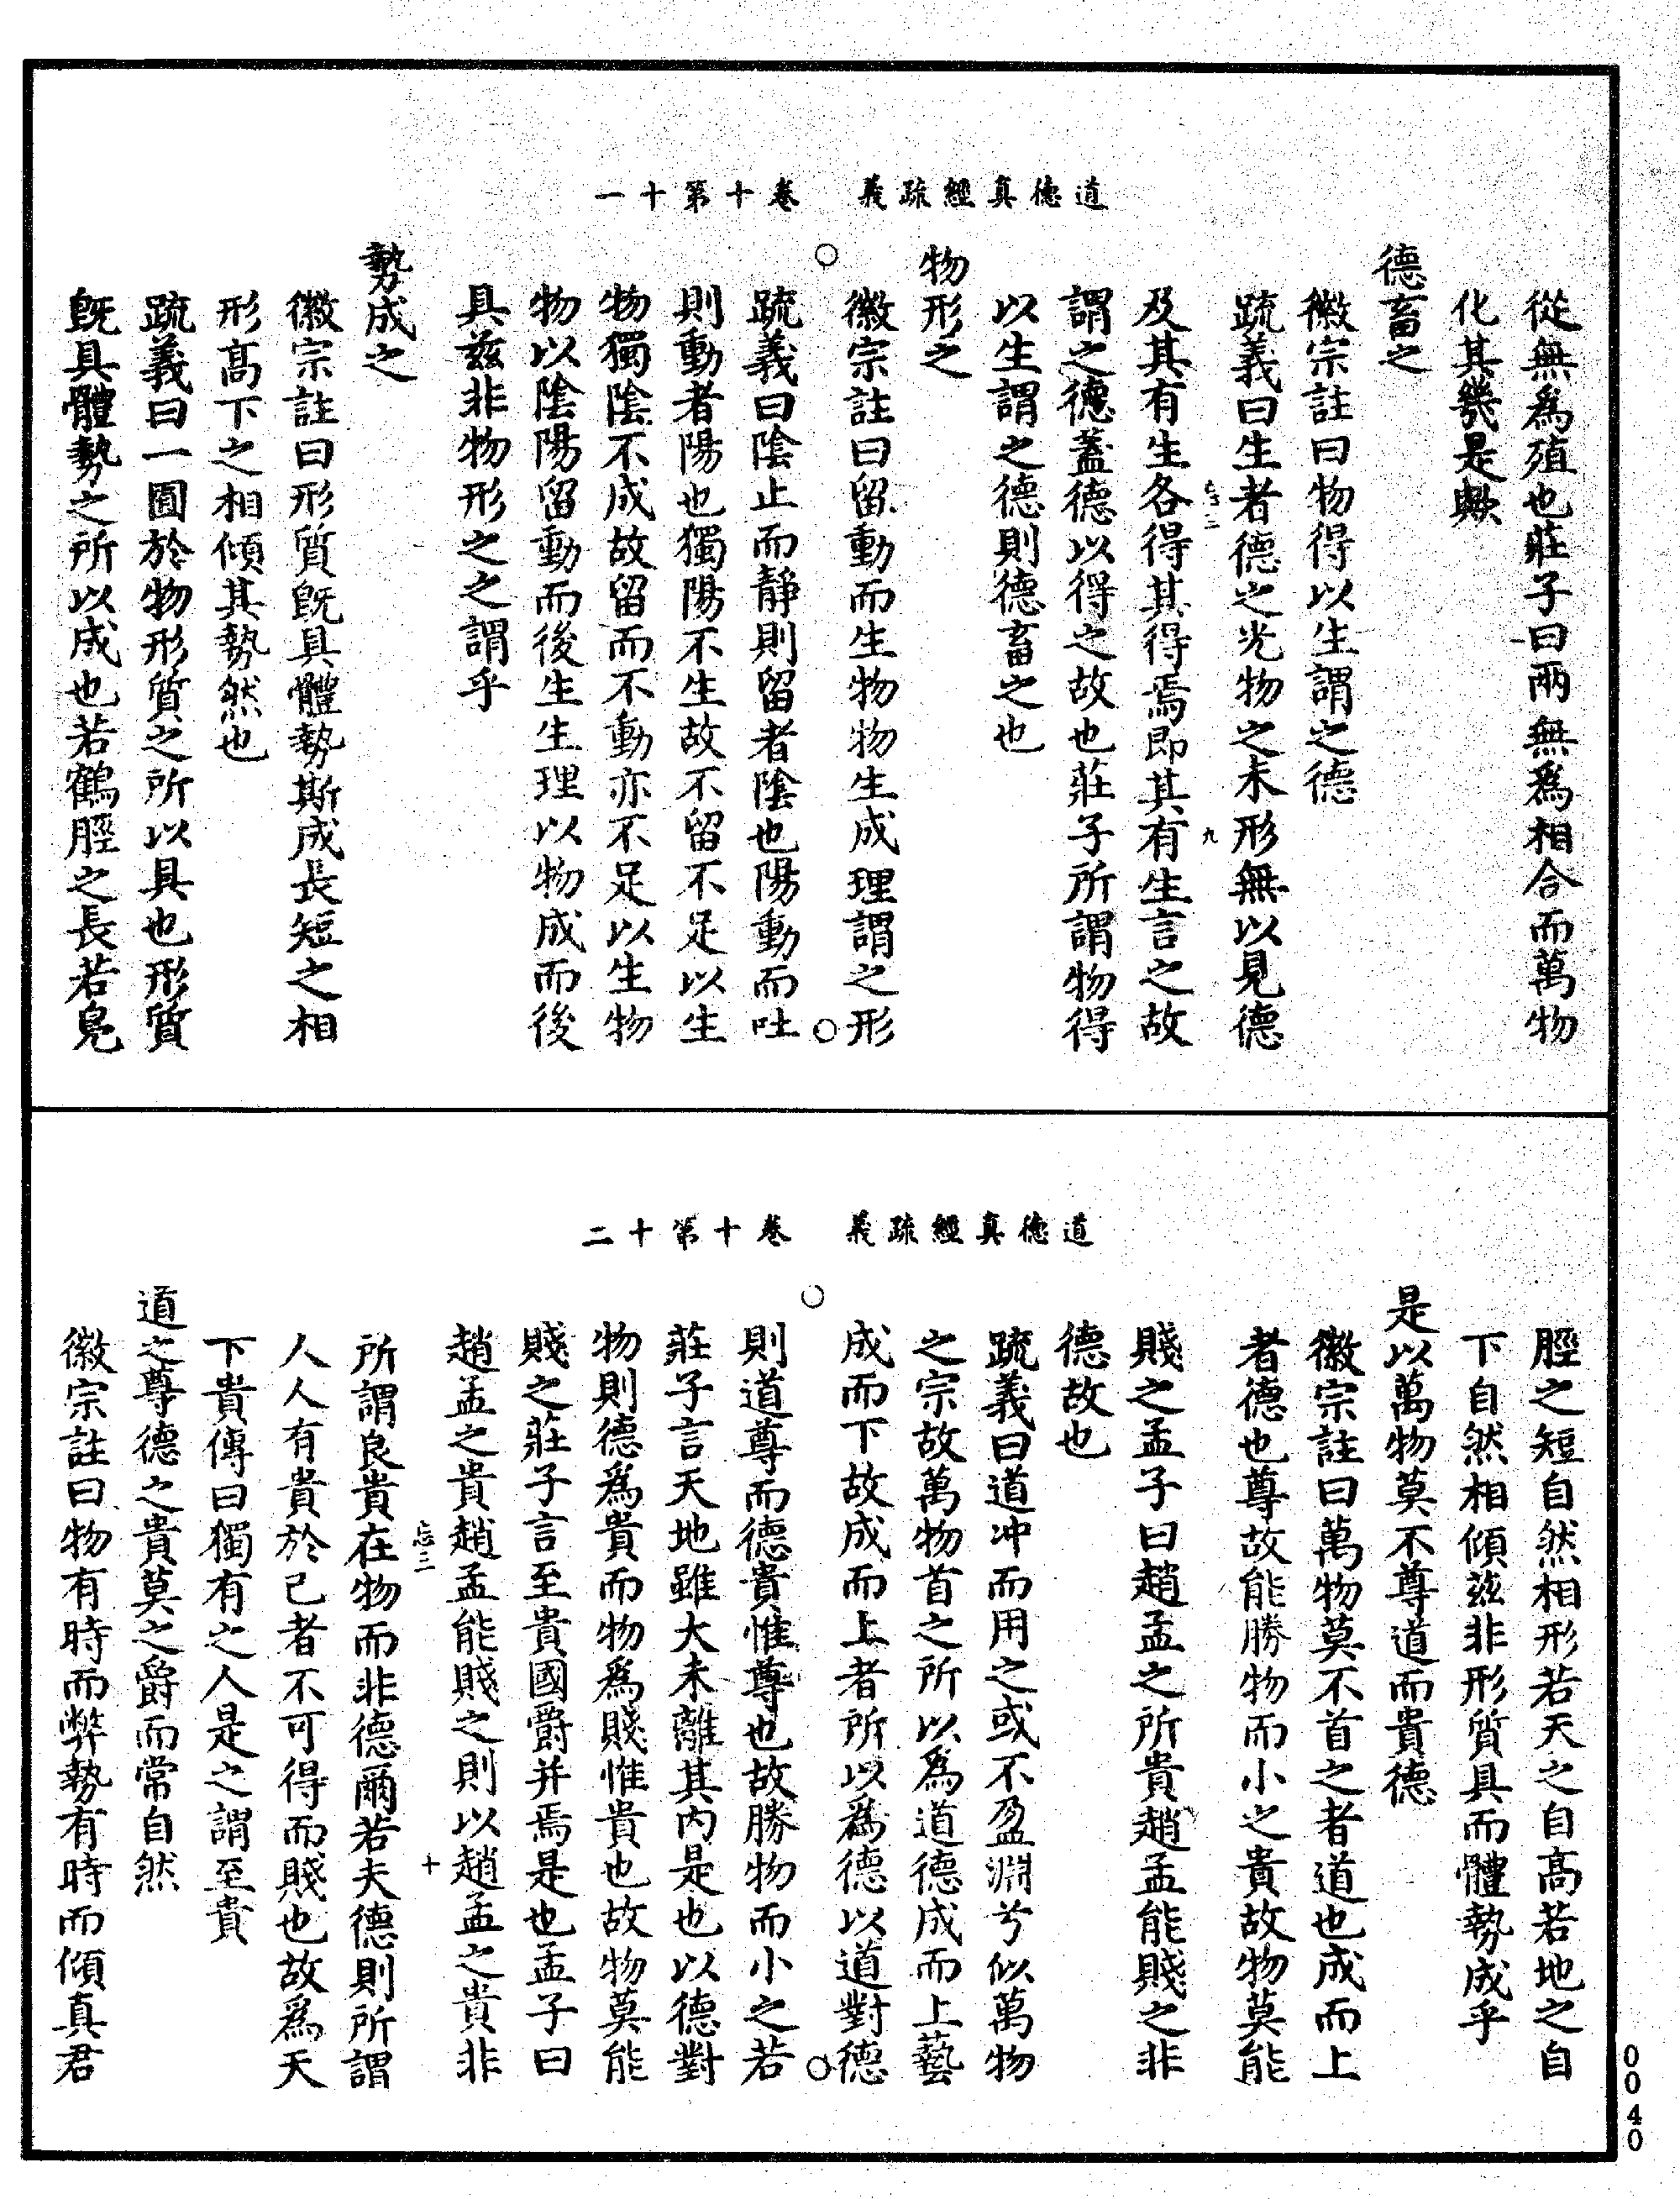 道德真經疏義　卷十第十一
從無爲殖也莊子曰兩無爲相合而萬物
化其幾是歟
德畜之
徽宗註曰物得以生謂之德
疏義曰生者德之光物之未形無以見德
忘三　九
及其有生各得其得焉即其有生言之故
謂之德蓋德以得之故也莊子所謂物得
以生謂之德則德畜之也
物形之
徽宗註曰留動而生物物生成理謂之形
疏義曰陰止而靜則留者陰也陽動而吐
則動者陽也獨陽不生故不留不足以生
物獨陰不成故留而不動亦不足以生物
物以陰陽留動而後生生理以物成而後
具兹非物形之之謂乎
勢成之
徽宗註曰形質旣具體勢斯成長短之相
形高下之相傾其勢然也
疏義曰一囿於物形質之所以具也形質
旣具體勢之所以成也若鶴脛之長若鳧
道德真經疏義　卷十第十二
脛之短自然相形若天之自高若地之自
下自然相傾兹非形質具而體勢成乎
是以萬物莫不尊道而貴德
徽宗註曰萬物莫不首之者道也成而上
者德也尊故能勝物而小之貴故物莫能
賤之孟子曰趙孟之所貴趙孟能賤之非
德故也
疏義曰道冲而用之或不盈淵兮似萬物
之宗故萬物首之所以爲道德成而上藝
成而下故成而上者所以爲德以道對德
則道尊而德貴惟尊也故勝物而小之若
莊子言天地雖大未離其内是也以德對
物則德爲貴而物爲賤惟貴也故物莫能
賤之莊子言至貴國爵并焉是也孟子曰
趙孟之貴趙孟能賤之則以趙孟之貴非
忘三　十
所謂良貴在物而非德爾若夫德則所謂
人人有貴於己者不可得而賤也故爲天
下貴傳曰獨有之人是之謂至貴
道之尊德之貴莫之爵而常自然
徽宗註曰物有時而弊勢有時而傾真君
0040